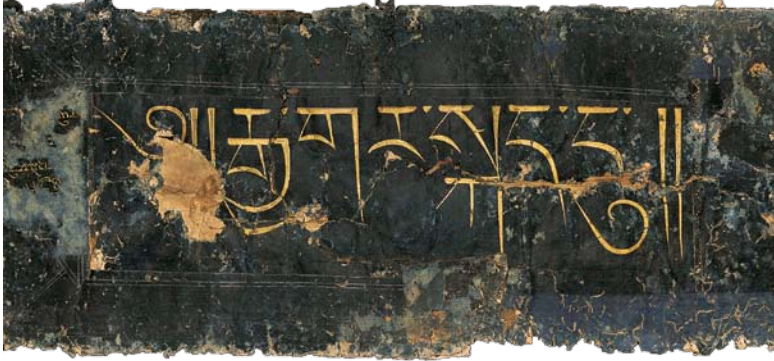 ༄༅།། རྒྱ་གར་སྐད་དུ།།